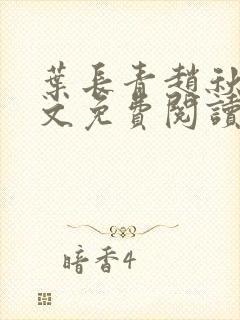 葉長青趙秋
文免費閱讀
暗香4